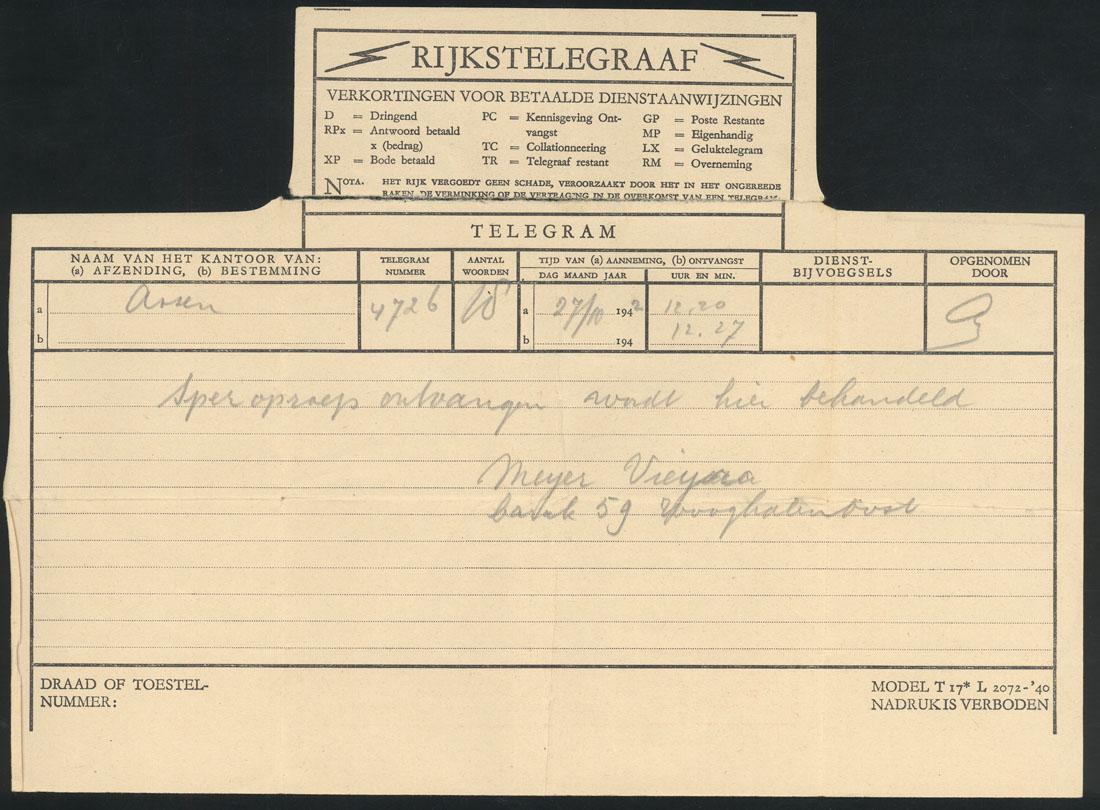 RIJKSTELEGRAAF
VERKORTINGEN VOOR BETAALDE DIENSTAANWIJZINGEN
D = Dringend
RPx = Antwoord betaald
x (bedrag)
XP = Bode betaald
PC = Kennisgeving Ont-
vangst
TC = Collationneering
TR = Telegraaf restant
GP = Poste Restante
MP = Eigenhandig
LX = Geluktelegram
RM = Overneming
NOTA. HET RIJK VERGOEDT GEEN SCHADE, VEROORZAAKT DOOR HET IN HET ONGEREEDE
RAKEN, DE VERMINKING OF DE VERTRAGING IN DE OVERKOMST VAN EEN TELEGRAM.
TELEGRAM
NAAM VAN HET KANTOOR VAN:
(a) AFZENDING, (b) BESTEMMING
TELEGRAM
NUMMER
AANTAL
WOORDEN
TIJD VAN (a) AANNEMING, (b) ONTVANGST
DAG MAAND JAAR
UUR EN MIN.
DIENST-
BIJVOEGSELS
OPGENOMEN
DOOR
a Assen 4726 18 a 27/10 1942 12.20
b b 194 12.27
Sper oproep ontvangen wordt hier behandeld
Meyer Vieyra
barak 59 Hooghalen Oost
DRAAD OF TOESTEL-
NUMMER:
MODEL T 17* L 2072-'40
NADRUK IS VERBODEN